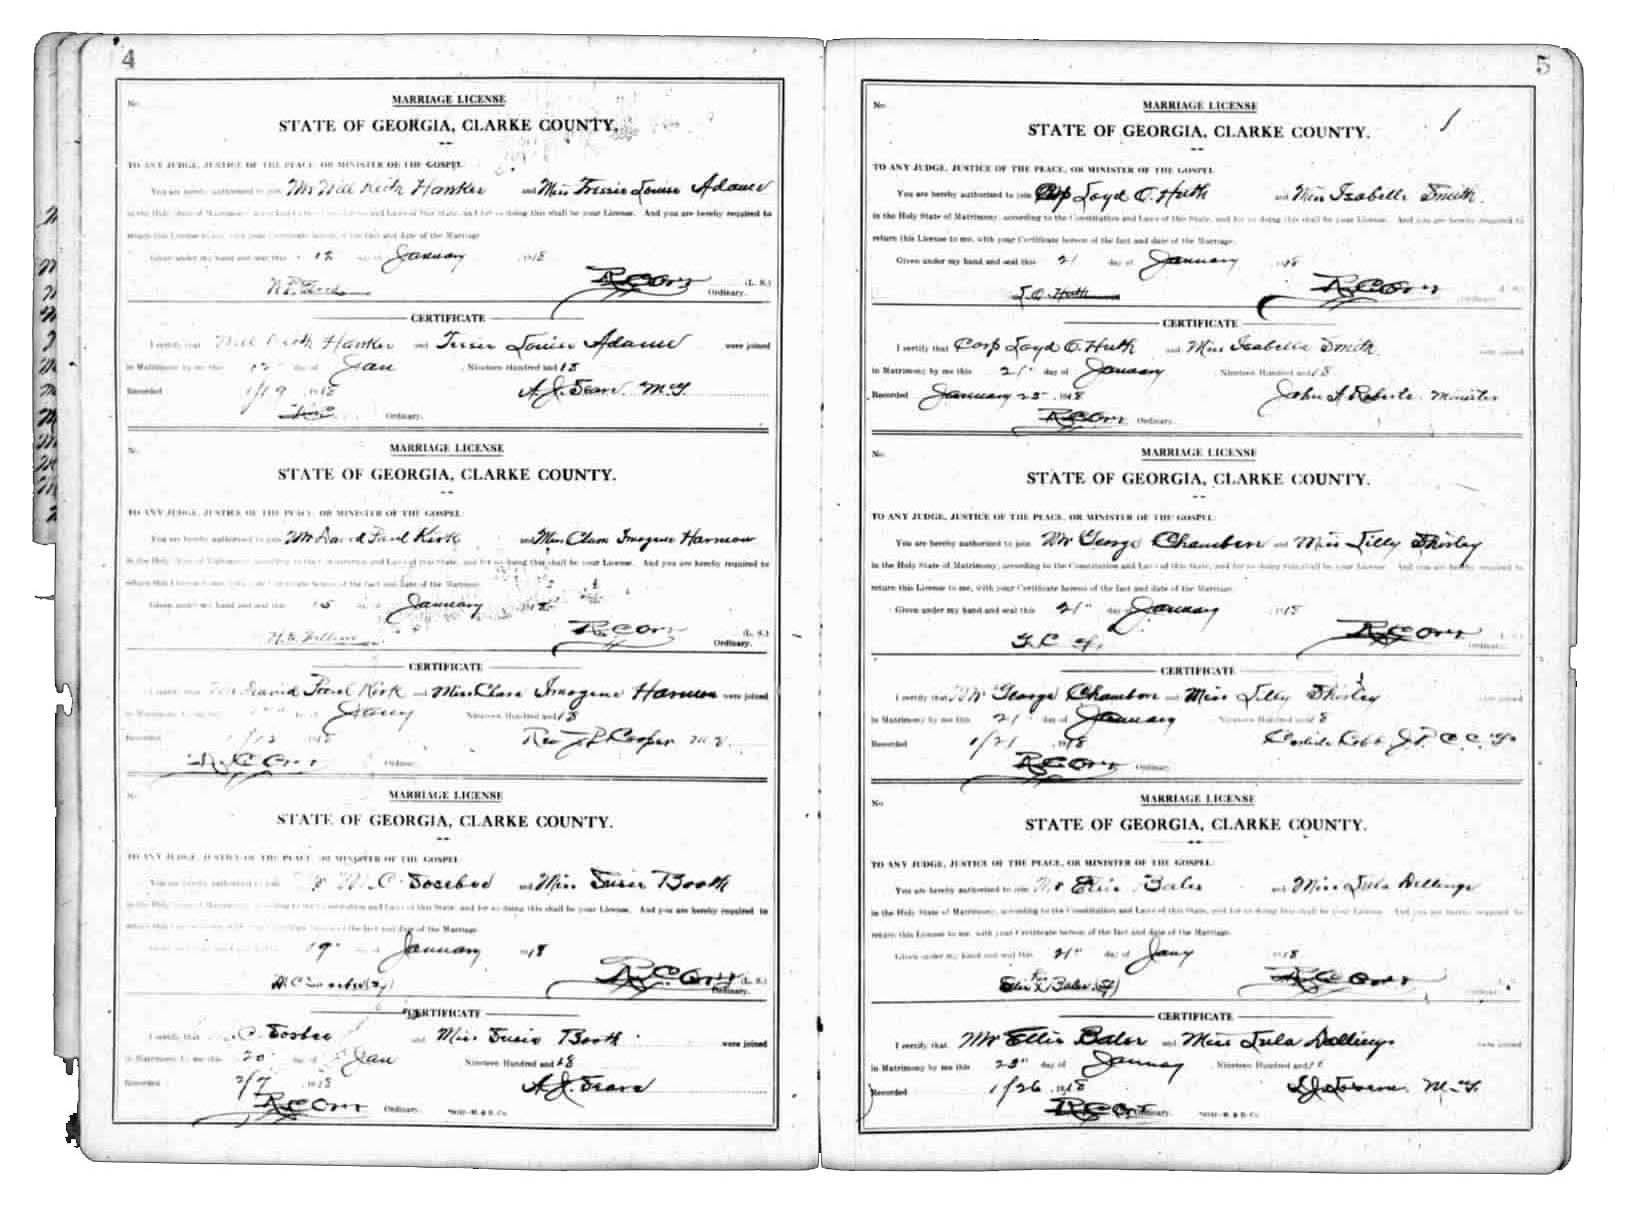 4
No.
MARRIAGE LICENSE
STATE OF GEORGIA, CLARKE COUNTY.
TO ANY JUDGE, JUSTICE OF THE PEACE, OR MINISTER OF THE GOSPEL
You are hereby authorized to join Mr Will Hawker and Miss Louise Adams
in the Holy State of Matrimony, according to the Constitution and Laws of this State, and for so doing this shall be your License. And you are hereby required to
return this License to me, with your Certificate hereon of the fact and date of the Marriage.
Given under my hand and seal this 12 day of January 1918
R C Orr (L. S.)
Ordinary.
CERTIFICATE
I certify that Will Hawker and Louise Adams were joined
in Matrimony by me this 12 day of Jan Nineteen Hundred and 18
Recorded 1/19 1918 A. J. Sears. M. G.
Ordinary.
No.
MARRIAGE LICENSE
STATE OF GEORGIA, CLARKE COUNTY.
TO ANY JUDGE, JUSTICE OF THE PEACE, OR MINISTER OF THE GOSPEL
You are hereby authorized to join Mr David Paul Kirk and Miss Clara Imogene Harmon
in the Holy State of Matrimony, according to the Constitution and Laws of this State, and for so doing this shall be your License. And you are hereby required to
return this License to me, with your Certificate hereon of the fact and date of the Marriage.
Given under my hand and seal this 15 day of January 1918
R C Orr (L. S.)
Ordinary.
CERTIFICATE
I certify that David Paul Kirk and Miss Clara Imogene Harmon were joined
in Matrimony by me this day of Jany Nineteen Hundred and 18
Recorded 1918 Rev Cooper M. G.
R. C Orr Ordinary.
No.
MARRIAGE LICENSE
STATE OF GEORGIA, CLARKE COUNTY.
TO ANY JUDGE, JUSTICE OF THE PEACE, OR MINISTER OF THE GOSPEL
You are hereby authorized to join C. Sosebee and Miss Susie Booth
in the Holy State of Matrimony, according to the Constitution and Laws of this State, and for so doing this shall be your License. And you are hereby required to
return this License to me, with your Certificate hereon of the fact and date of the Marriage.
Given under my hand and seal this 19" day of January 1918
R. C. Orr (L. S.)
Ordinary.
CERTIFICATE
I certify that C. Sosbee and Miss Susie Booth were joined
in Matrimony by me this 20 day of Jan Nineteen Hundred and 18
Recorded 2/7 1918 A. J. Sears
R C Orr Ordinary.
5
No.
MARRIAGE LICENSE
STATE OF GEORGIA, CLARKE COUNTY.
TO ANY JUDGE, JUSTICE OF THE PEACE, OR MINISTER OF THE GOSPEL
You are hereby authorized to join Corp Loyd O. Huth and Miss Isabelle Smith.
in the Holy State of Matrimony, according to the Constitution and Laws of this State, and for so doing this shall be your License. And you are hereby required to
return this License to me, with your Certificate hereon of the fact and date of the Marriage.
Given under my hand and seal this 21 day of January 1918
L. O. Huth R C Orr (L. S.)
Ordinary.
CERTIFICATE
I certify that Corp Loyd O. Huth and Miss Isabella Smith were joined
in Matrimony by me this 21" day of January Nineteen Hundred and 18
Recorded January 25" 1918 John A Roberts. Minister
R C Orr Ordinary.
No.
MARRIAGE LICENSE
STATE OF GEORGIA, CLARKE COUNTY.
TO ANY JUDGE, JUSTICE OF THE PEACE, OR MINISTER OF THE GOSPEL
You are hereby authorized to join Mr George Chambers and Miss Lilly Shirley
in the Holy State of Matrimony, according to the Constitution and Laws of this State, and for so doing this shall be your License. And you are hereby required to
return this License to me, with your Certificate hereon of the fact and date of the Marriage.
Given under my hand and seal this 21" day of January 1918
R C Orr (L. S.)
Ordinary.
CERTIFICATE
I certify that Mr George Chambers and Miss Lilly Shirley were joined
in Matrimony by me this 21" day of January Nineteen Hundred and 18
Recorded 1/21 1918 Carlisle Cobb J. P. C. C. Ga
R C Orr Ordinary.
No
MARRIAGE LICENSE
STATE OF GEORGIA, CLARKE COUNTY.
TO ANY JUDGE, JUSTICE OF THE PEACE, OR MINISTER OF THE GOSPEL
You are hereby authorized to join Mr Ellis Baler and Miss Lula Dellinger
in the Holy State of Matrimony, according to the Constitution and Laws of this State, and for so doing this shall be your License. And you are hereby required to
return this License to me, with your Certificate hereon of the fact and date of the Marriage.
Given under my hand and seal this 21" day of Jany 1918
Ellis X Baler R C Orr (L. S.)
Ordinary.
CERTIFICATE
I certify that Mr Ellis Baler and Miss Lula Dellinger were joined
in Matrimony by me this 23" day of January Nineteen Hundred and 18
Recorded 1/26 1918 M. G.
R C Orr Ordinary.